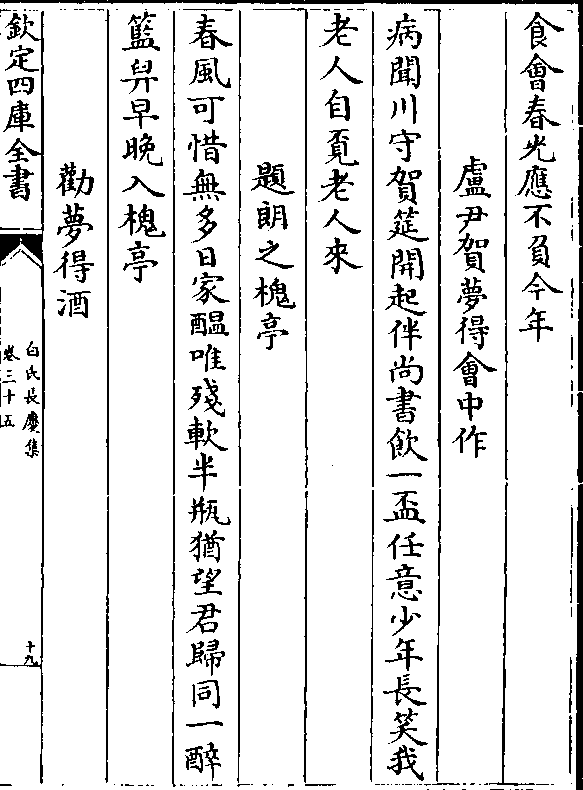 食會春光應不負今年
盧尹賀夢得會中作
病聞川守賀筵開起伴尚書飲一盃任意少年長笑我
老人自覔老人來
題朗之槐亭
春風可惜無多日家醖唯殘軟半瓶猶望君歸同一醉
籃舁早晚入槐亭
勸夢得酒
欽定四庫全書
白氏長慶集
卷三十五
十九